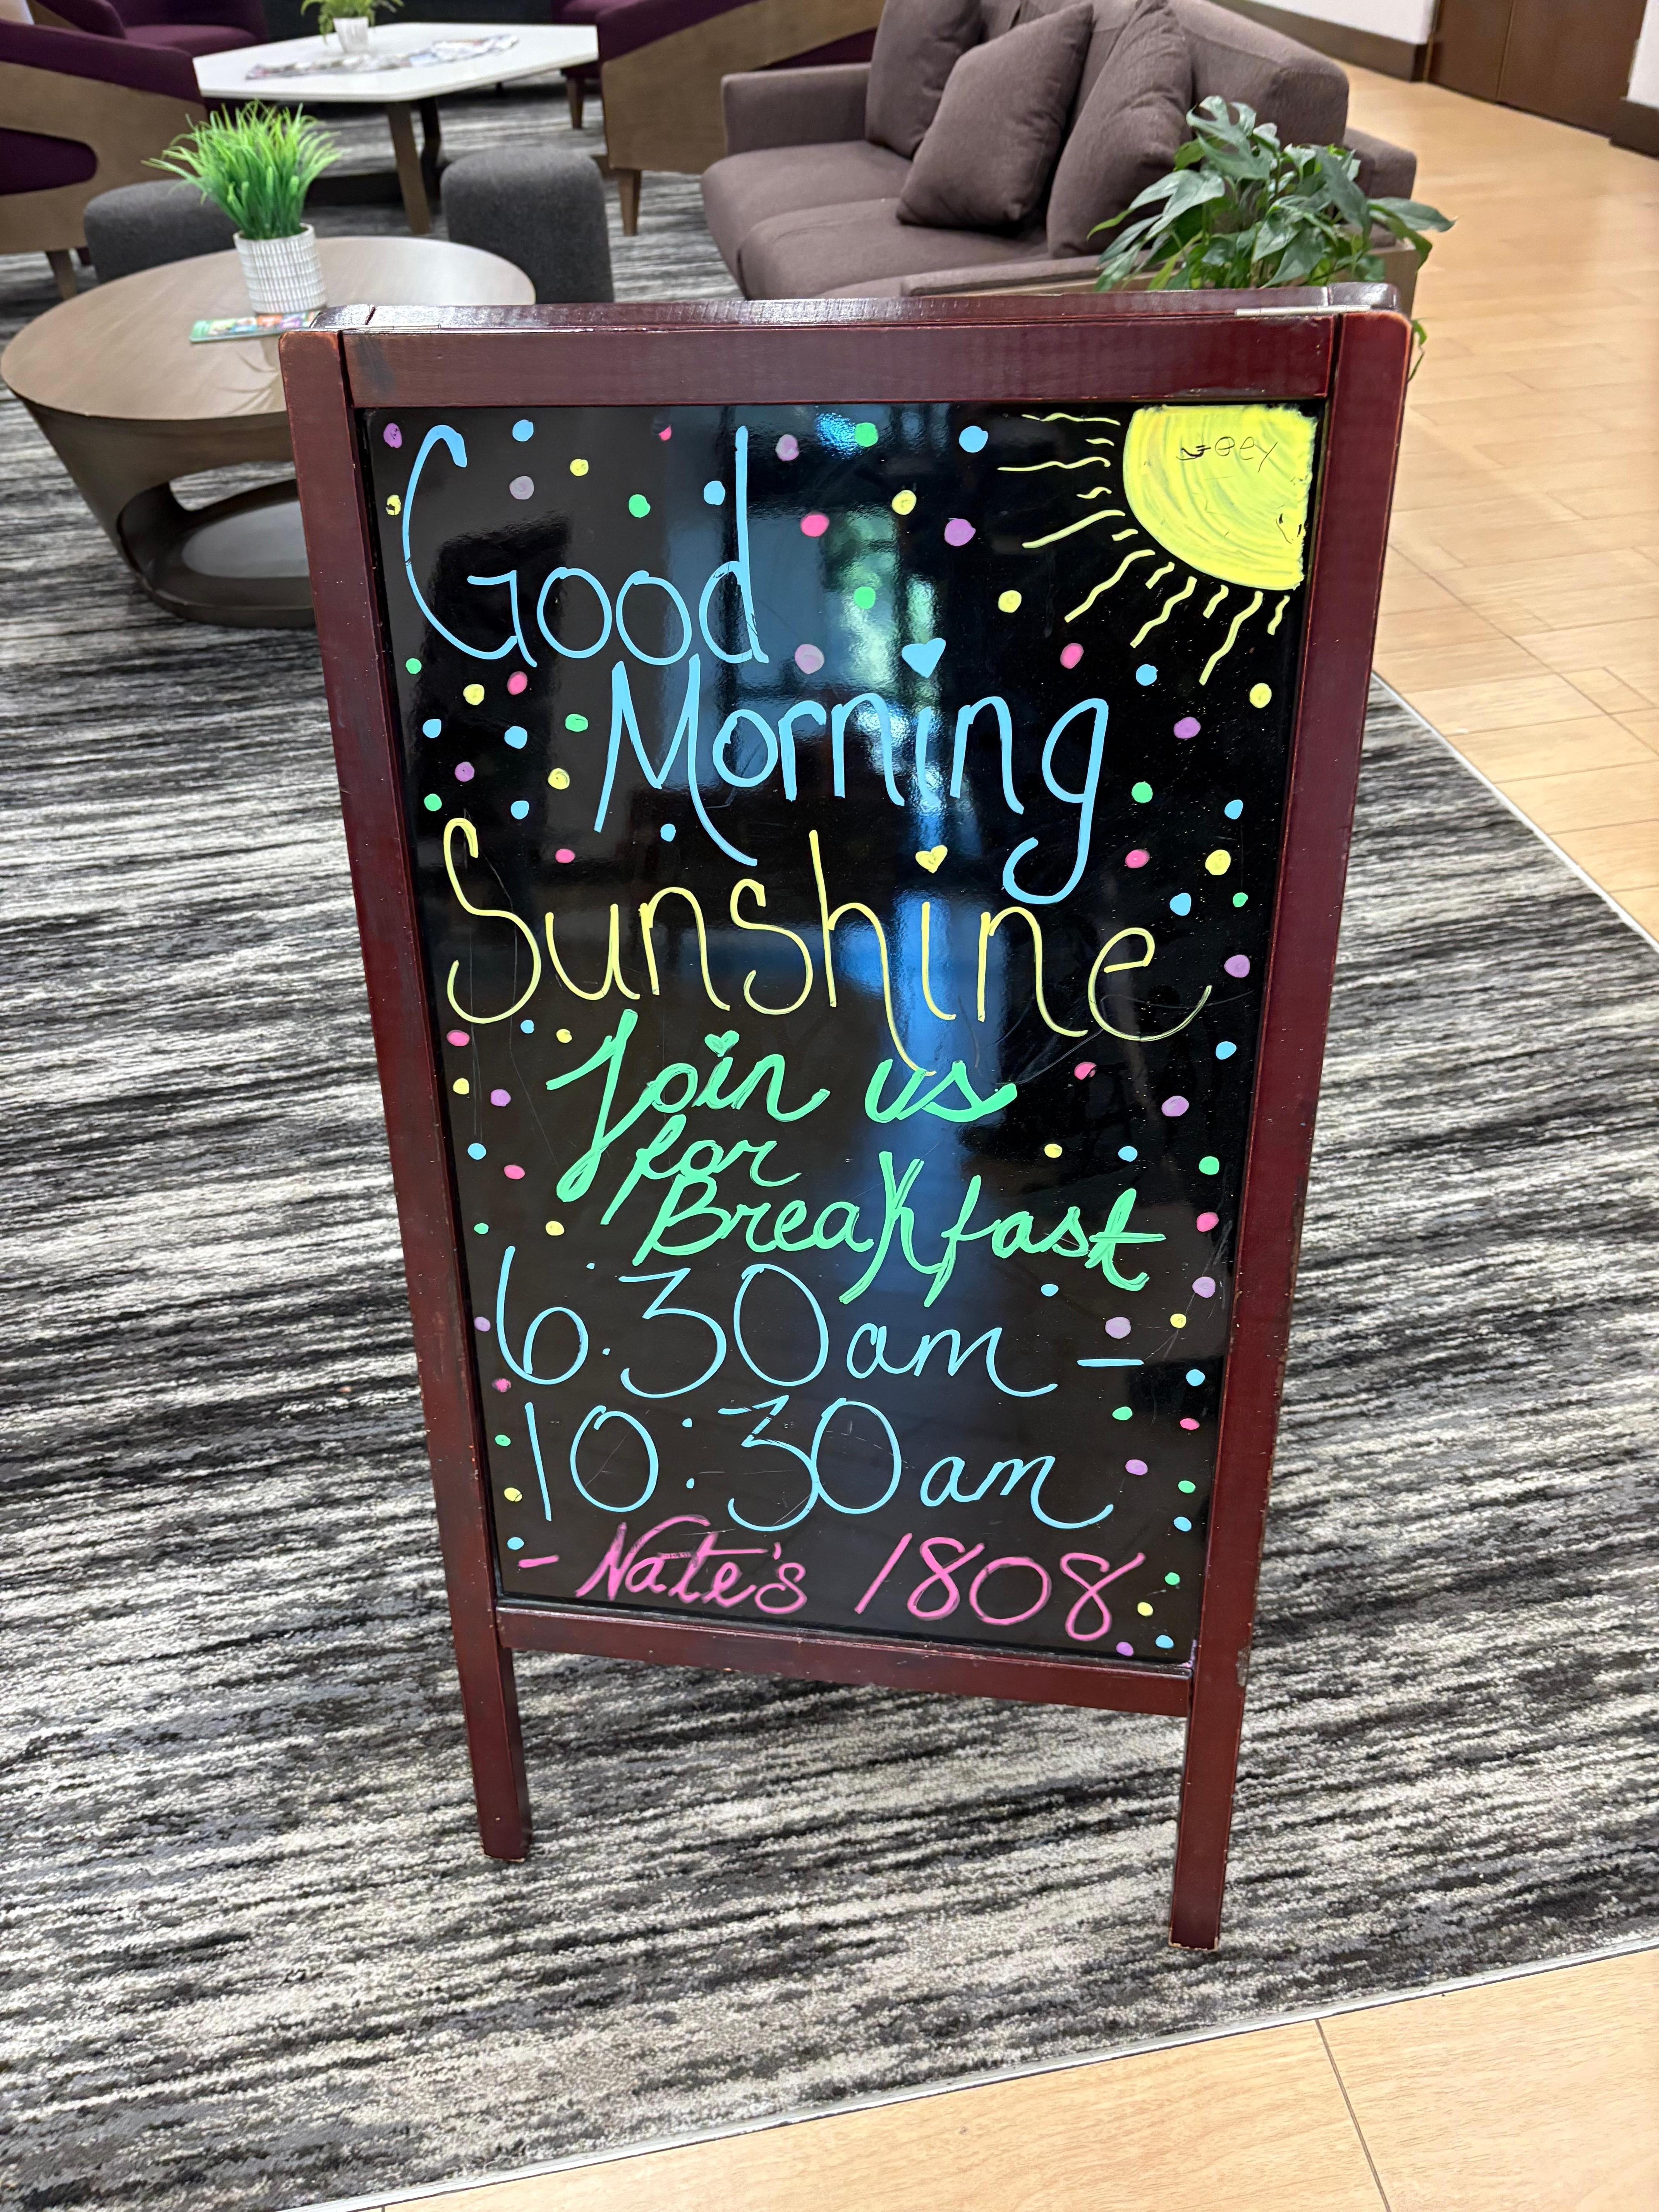 Good
Morning
Sunshine
Join us
for
Breakfast
6:30am -
10:30am
- Nate's 1808